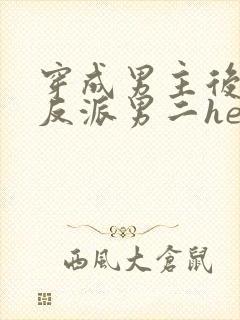 穿成男主後
反派男二he
西風大倉鼠